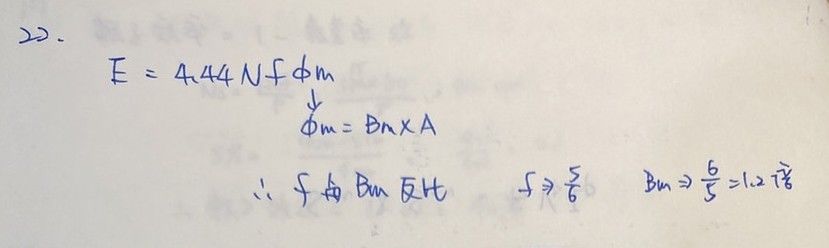 22.
E = 4.44 N f ϕm
↓
ϕm = Bm × A
∴ f 与 Bm 反比 f ⇒ 5/6 Bm ⇒ 6/5 = 1.2倍